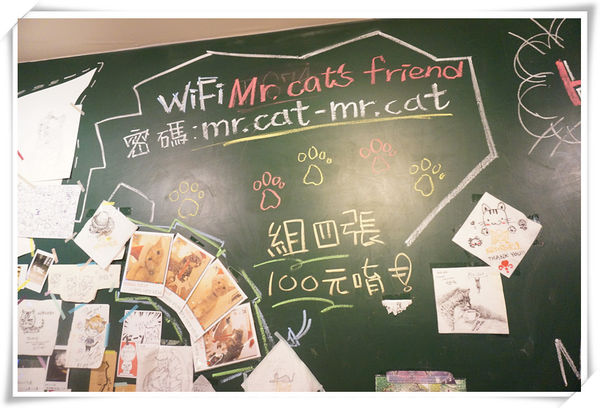 WiFi Mr. cat's friend
密碼：mr.cat-mr.cat
組四張
100元唷！
THANK YOU